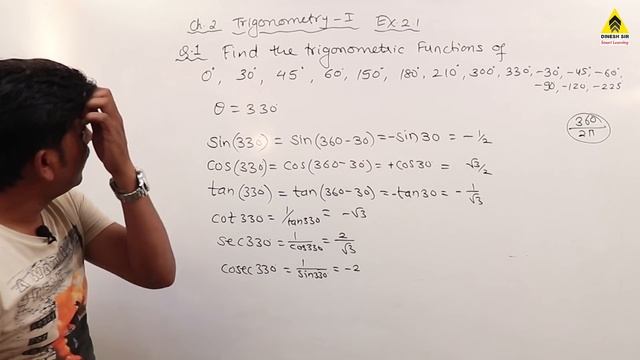 Ch.2 Trigonometry-I Ex.2.1
Q.1 Find the trigonometric Functions of
0°, 30°, 45°, 60°, 150°, 180°, 210°, 300°, 330°, -30°, -45°, -60°,
-90, -120, -225
θ = 330°
sin(330) = sin(360-30) = -sin30 = -1/2
cos(330) = cos(360-30) = +cos30 = √3/2
tan(330) = tan(360-30) = -tan30 = -1/√3
cot330 = 1/tan330 = -√3
sec330 = 1/cos330 = 2/√3
cosec330 = 1/sin330 = -2
360/2π
DINESH SIR
Smart Learning